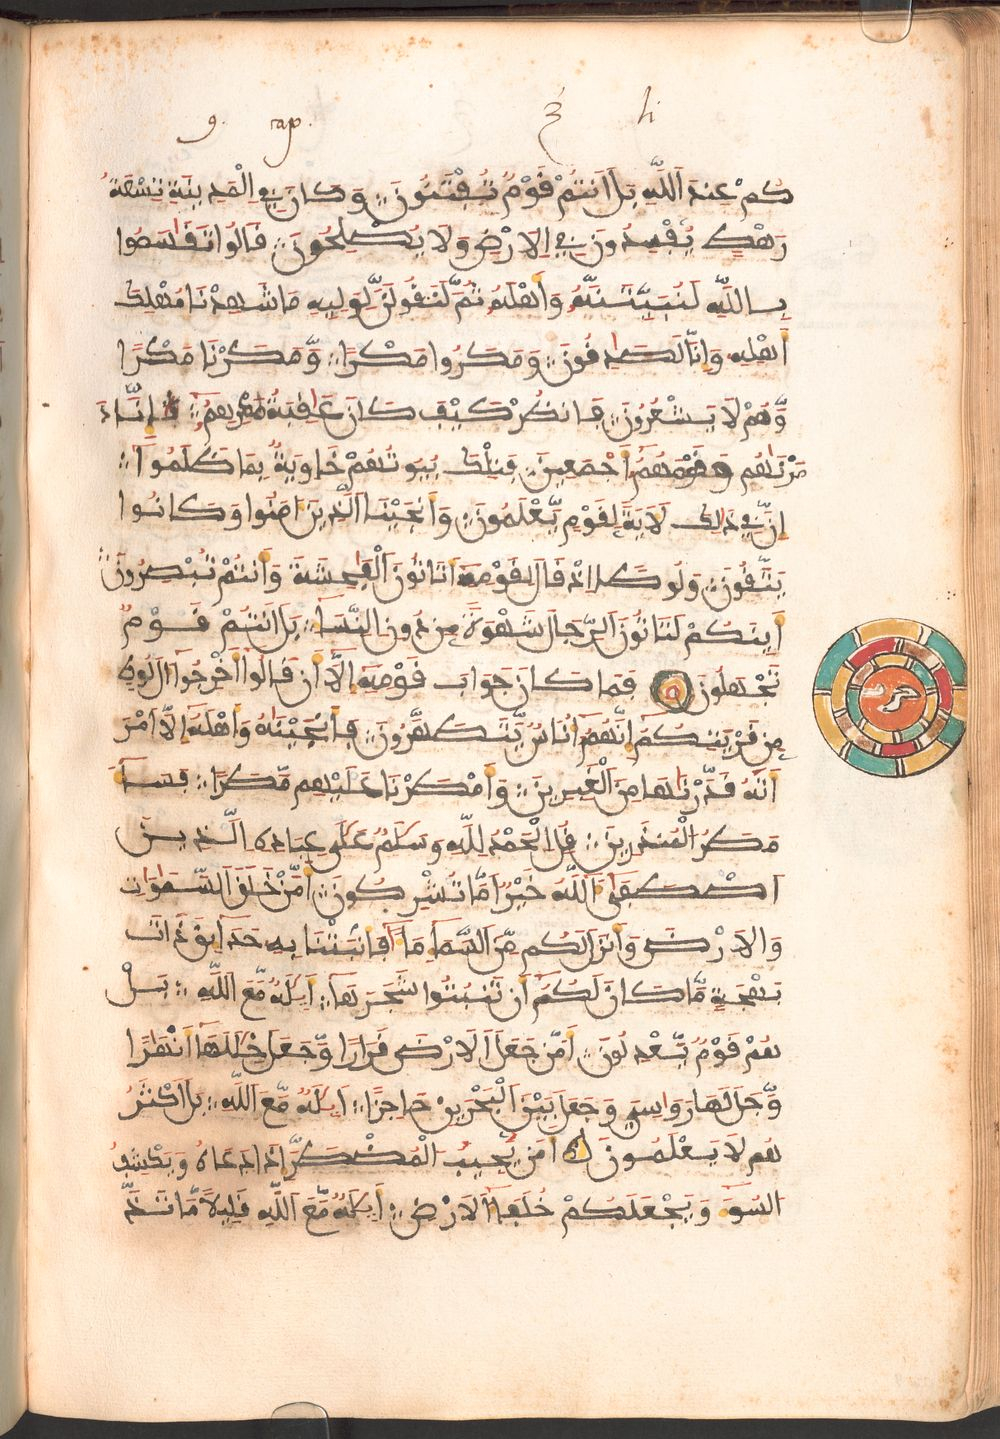 9. cap. li
كُمْ عِندَ اَللَّهِ بَلَ اَنتُمْ قَوْمٌ تُفْتَنُونَ وَكَانَ فِي الْمَدِينَةِ تِسْعَةُ
رَهْطٍ يُفْسِدُونَ فِي اِلَارْضِ وَلَا يُصْلِحُونَ قَالُوا تَقَاسَمُوا
بِاللَّهِ لَنُبَيِّتَنَّهُ وَأَهْلَهُ ثُمَّ لَنَقُولَنَّ لِوَلِيِّهِ مَا شَهِدْنَا مُهْلَكَ
أَهْلِهِ وَإِنَّا لَصَادِقُونَ وَمَكَرُوا مَكْرًا وَّمَكَرْنَا مَكْرًا
وَّهُمْ لَا يَشْعُرُونَ فَانظُرْ كَيْفَ كَانَ عَاقِبَةُ مَكْرِهِمْ إِنَّا دَ
مَّرْنَاهُمْ وَقَوْمَهُمْ أَجْمَعِينَ فَتِلْكَ بُيُوتُهُمْ خَاوِيَةً بِمَا ظَلَمُوا
إِنَّ فِي ذَالِكَ لَآيَةً لِّقَوْمٍ يَّعْلَمُونَ وَأَنجَيْنَا اَلَّذِينَ ءَامَنُوا وَكَانُوا
يَتَّقُونَ وَلُوطًا اِذْ قَالَ لِقَوْمِهِ أَتَاتُونَ اَلْفَاحِشَةَ وَأَنتُمْ تُبْصِرُونَ
أَينَّكُمْ لَتَاتُونَ اَلرِّجَالَ شَهْوَةً مِّن دُونِ النِّسَآءِ بَلَ اَنتُمْ قَوْمٌ
تَجْهَلُونَ فَمَا كَانَ جَوَابَ قَوْمِهِ إِلَّا أَن قَالُوا أَخْرِجُوا ءَالَ لُوطٍ
مِّن قَرْيَتِكُمُ إِنَّهُمُ أُنَاسٌ يَّتَطَهَّرُونَ فَأَنجَيْنَاهُ وَأَهْلَهُ إِلَّا اَمْرَ
أَتَهُ قَدَّرْنَاهَا مِنَ اَلْغَابِرِينَ وَأَمْطَرْنَا عَلَيْهِم مَّطَرًا فَسَآءَ
مَطَرُ الْمُنذَرِينَ قُلِ اِلْحَمْدُ لِلَّهِ وَسَلَامٌ عَلَى عِبَادِهِ الَّذِينَ
اَصْطَفَى ءَاللَّهُ خَيْرٌ اَمَّا تُشْرِكُونَ أَمَّنْ خَلَقَ اَلسَّمَاوَاتِ
وَالَارْضَ وَأَنزَلَ لَكُم مِّنَ اَلسَّمَآءِ مَآءً فَأَنبَتْنَا بِهِ حَدَآئِقَ ذَاتَ
بَهْجَةٍ مَّا كَانَ لَكُمُ أَن تُنبِتُوا شَجَرَهَا أَ.لَهٌ مَّعَ اَللَّهِ بَلْ
هُمْ قَوْمٌ يَّعْدِلُونَ أَمَّن جَعَلَ اَلَارْضَ قَرَارًا وَّجَعَلَ خِلَالَهَا أَنْهَارًا
وَّجَعَلَ لَهَا رَوَاسِيَ وَجَعَلَ بَيْنَ اَلْبَحْرَيْنِ حَاجِزًا أَ.لَهٌ مَّعَ اَللَّهِ بَلَ اَكْثَرُ
هُمْ لَا يَعْلَمُونَ أَمَّن يُّجِيبُ الْمُضْطَرَّ إِذَا دَعَاهُ وَيَكْشِفُ
السُّوٓءَ وَيَجْعَلُكُمْ خُلَفَآءَ اَلَارْضِ أَ.لَهٌ مَّعَ اَللَّهِ قَلِيلًا مَّا تَذَّ